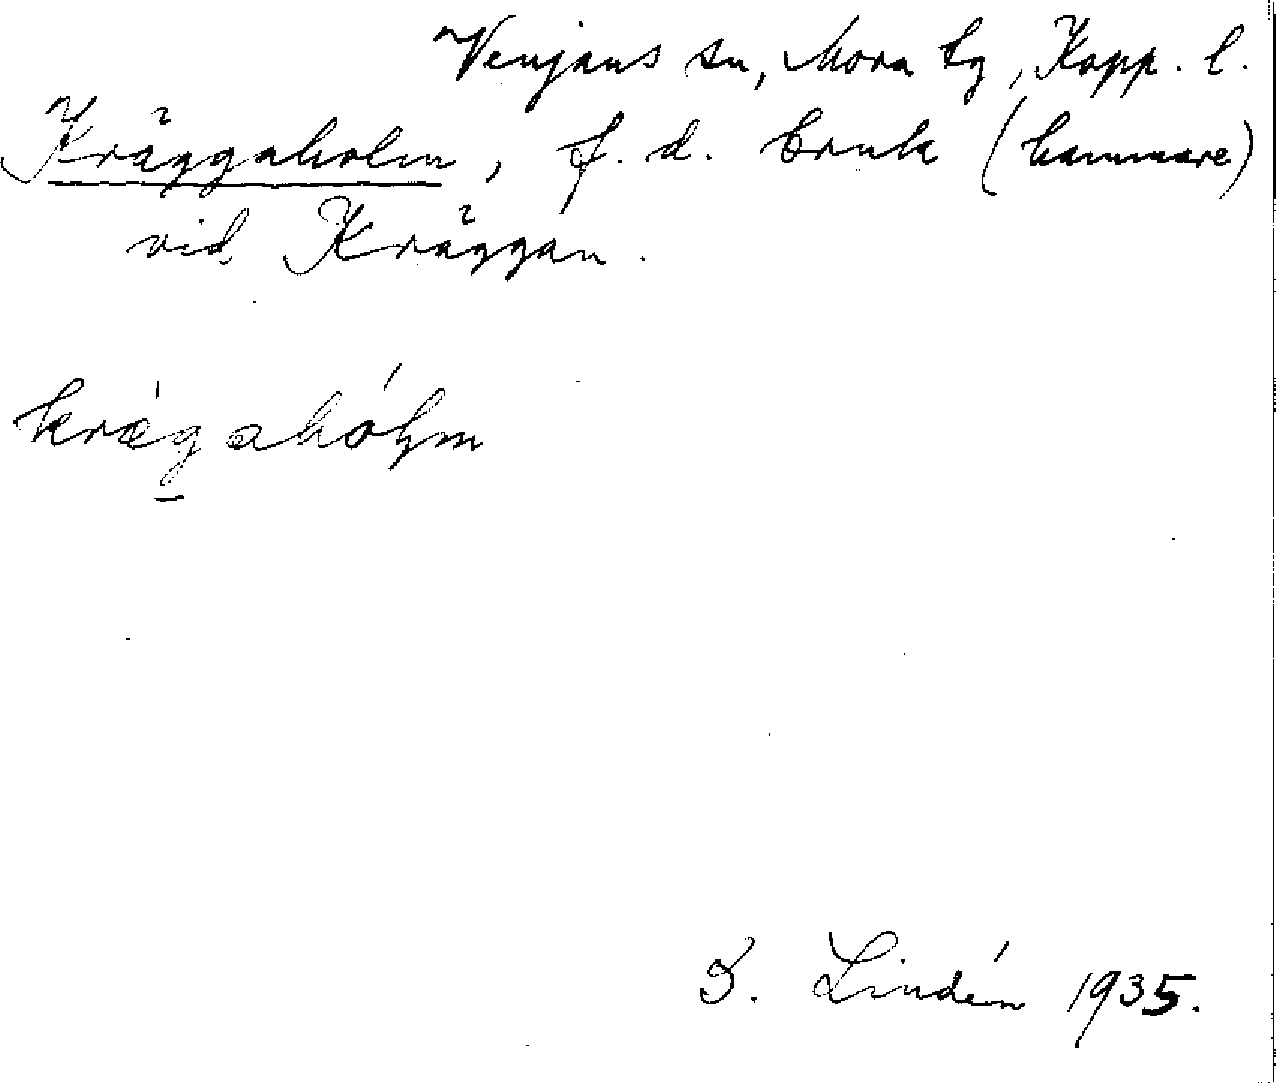 Venjans sn, Mora tg, Kopp. l.
Kräggaholm, f. d. bruk (hammare)
vid Kräggan.
B. Lindén 1935.